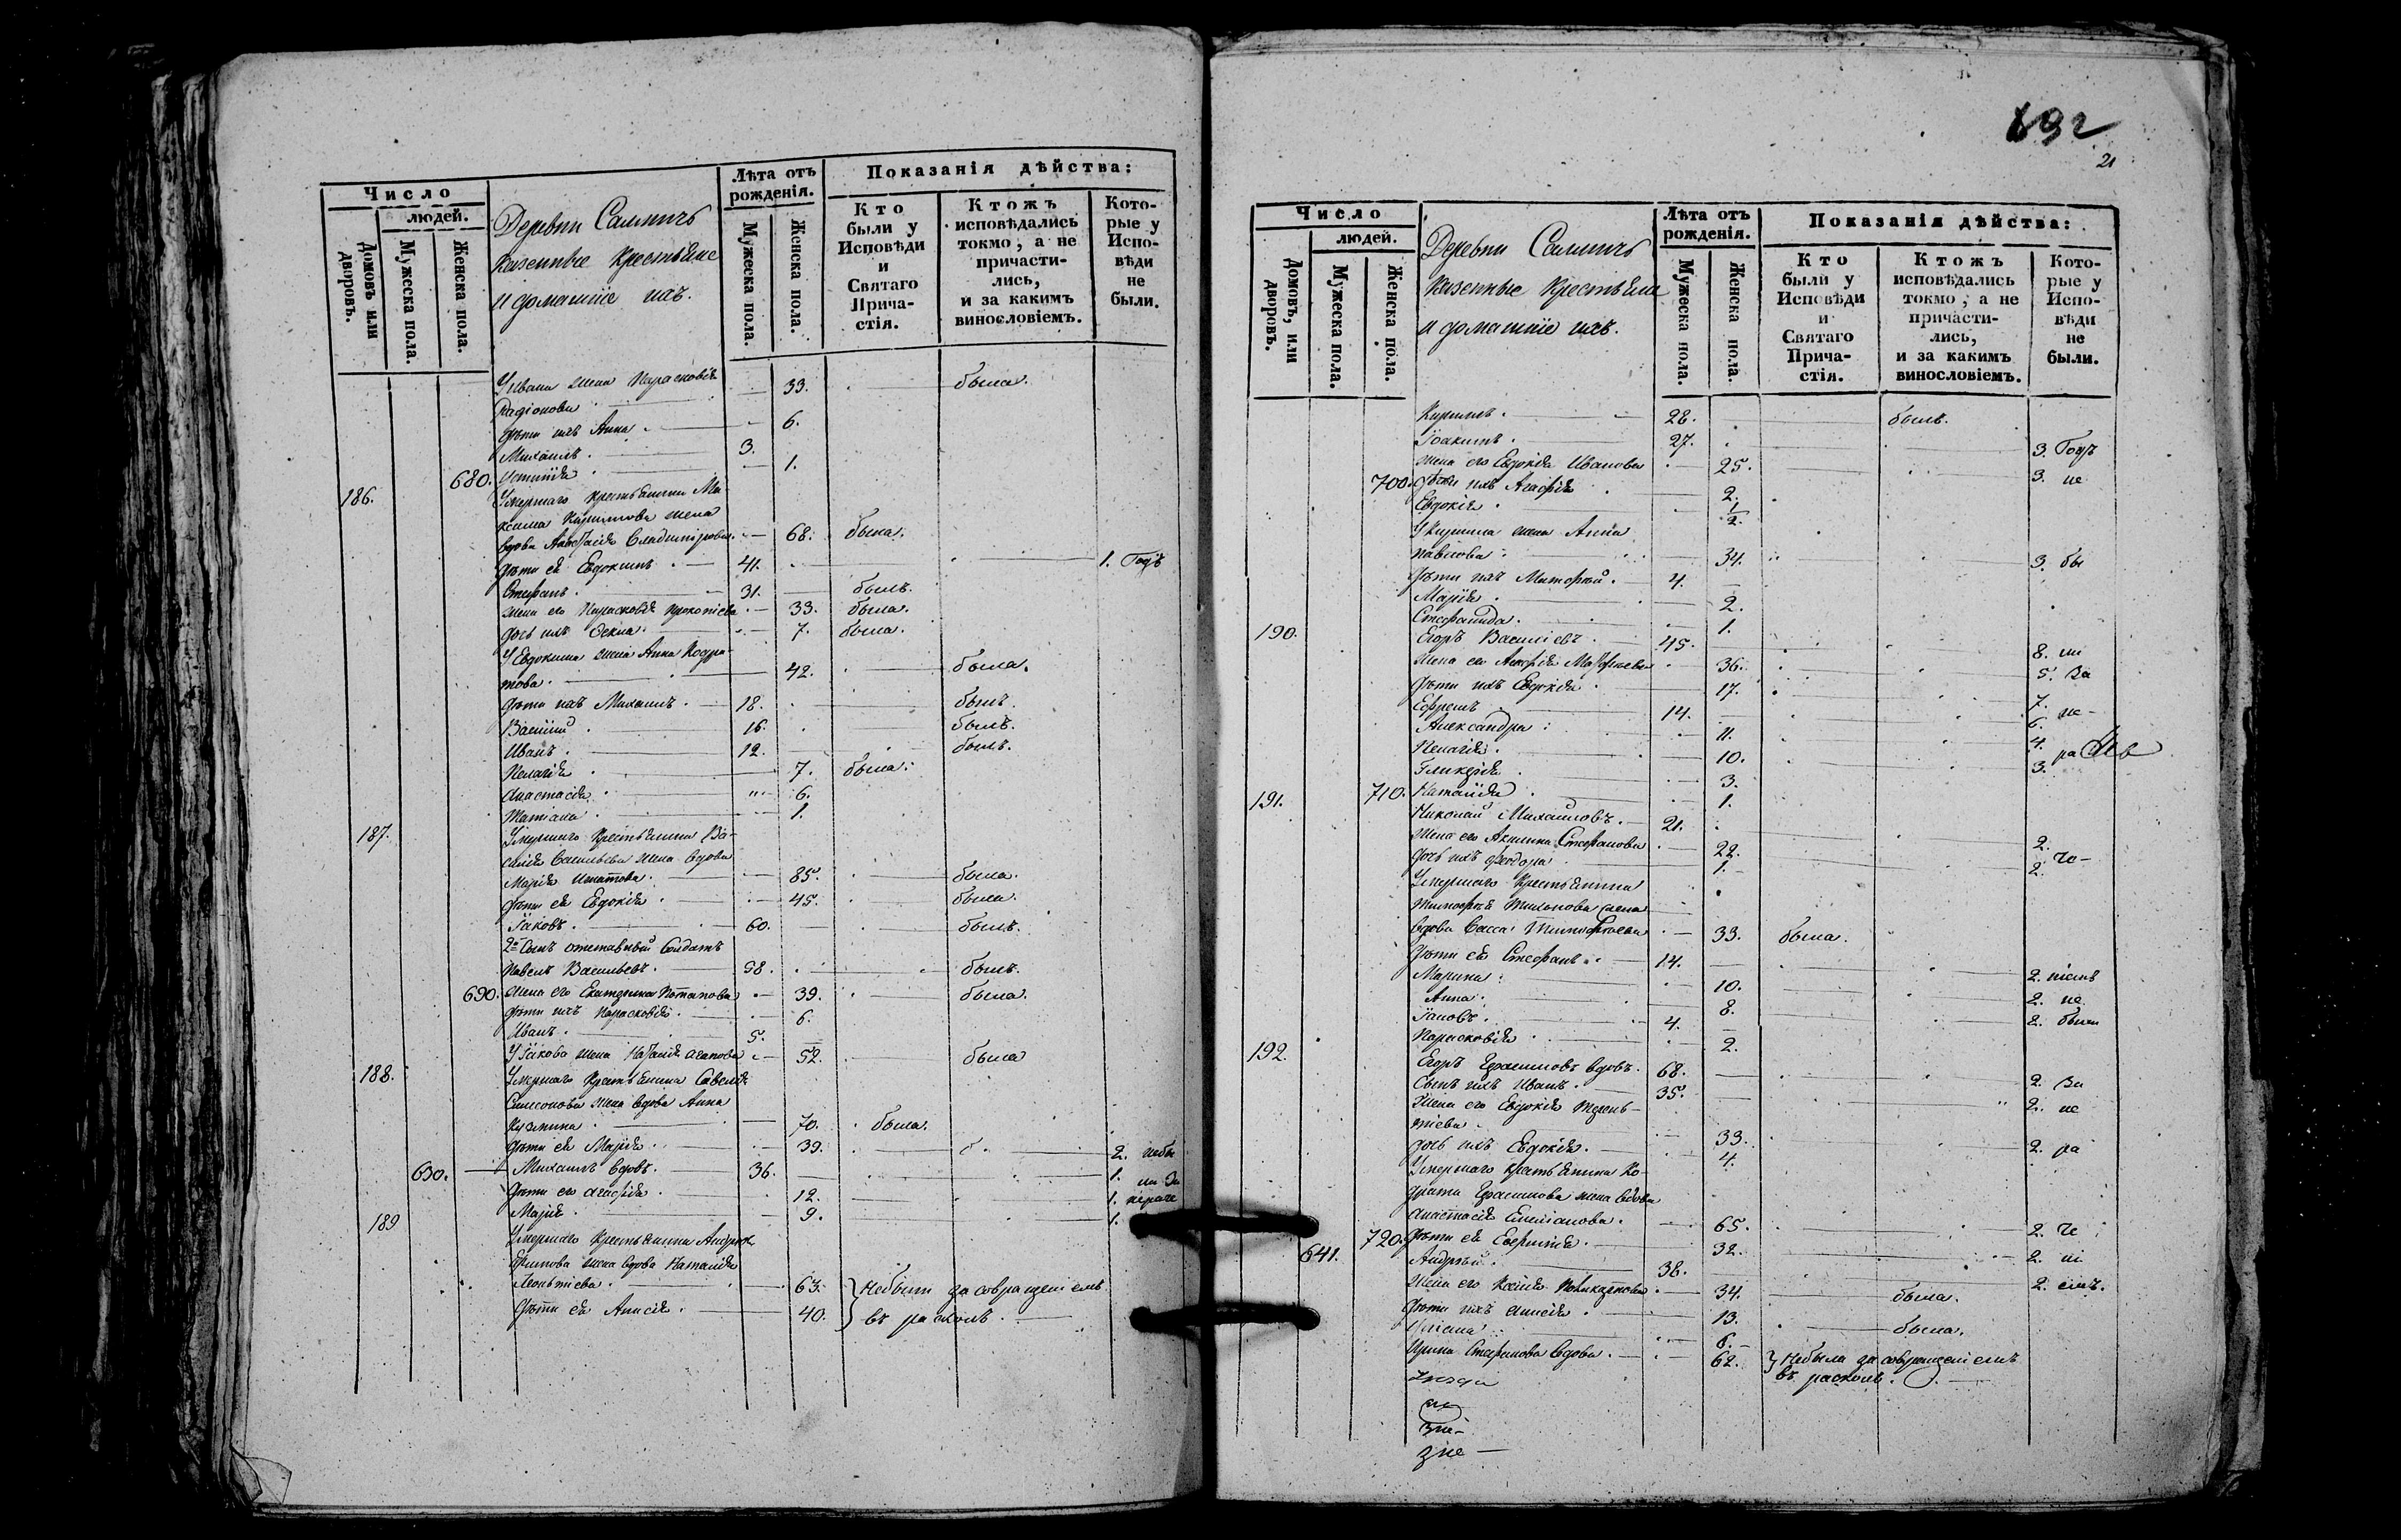 Число
людей.
Домовъ или дворовъ.
Мужеска пола.
Женска пола.
Деревни
казенные крестьяне
и домашніе ихъ.
Лѣта отъ рожденія.
Мужеска пола.
Женска пола.
Показанія дѣйства:
Кто были у Исповѣди и Святаго Прича-стія.
Ктожъ исповѣдались токмо, а не причасти-лись, и за какимъ винословіемъ.
Кото-рые у Испо-вѣди не были.
У Ивана жена Парасковія
Радіонова 33. была.
дѣти ихъ Анна 6.
Михаилъ 3.
680. 1.
186. Умершаго крестьянина Ма-
ксима Кирилова жена
вдова Владимірова 68. была.
дѣти ея Евдокимъ 41. 1. Годъ
Стефанъ 31. былъ.
жена его Парасковія Прокопіева 33. была.
дочь ихъ Фекла 7. была.
У Евдокима жена Анна Кодра-
това 42. была.
дѣти ихъ Михаилъ 18. былъ.
Василій 16. былъ.
Иванъ 12. былъ.
Пелагія 7. была.
Анастасія 6.
Татіана 1.
187. Умершаго крестьянина Ва-
силія Васильева жена вдова
Марія Игнатова 85. была.
дѣти ея Евдокія 45. была.
Іаковъ 60. былъ.
2й сынъ отставный солдатъ
Павелъ Васильевъ 58. былъ.
690. жена его Екатерина Потапова 39. была.
дѣти ихъ Парасковія 6.
Иванъ 5.
У Іакова жена Агапова 52. была
188. Умершаго крестьянина Савелія
Симеонова жена вдова Анна
Кузмина 70. была.
дѣти ея Марія 39. 2. небы
630. Михаилъ вдовъ 36. 1.
дѣти его Агафія 12. 1.
Марія 9. 1.
189 Умершаго крестьянина Андрея
жена вдова Наталія
Леонтіева 63. Небыли за совращеніемъ
дѣти ея Анисія 40. въ расколъ.
692
21
Число
людей.
Домовъ, или дворовъ.
Мужеска пола.
Женска пола.
Деревни
казенные крестьяне
и домашніе ихъ.
Лѣта отъ рожденія.
Мужеска пола.
Женска пола.
Показанія дѣйства:
Кто были у Исповѣди и Святаго Прича-стія.
Ктожъ исповѣдались токмо, а не причасти-лись, и за какимъ винословіемъ.
Кото-рые у Испо-вѣди не были.
Кирилъ 28. былъ.
Іоакимъ 27. 3. Годъ
жена его Евдокія Иванова 25. 3. не
700. дѣти ихъ Агафія 2.
Евдокія 1/2.
У Кирила жена Анна
Павлова 34. 3. бы
дѣти ихъ 4.
Марія 2.
Стефанида 1.
190. Егоръ Василіевъ 45. 8. ли
жена его 36. 5. За
дѣти ихъ Евдокія 17. 7.
Ефремъ 14. 6. не-
Александра 11. 4.
Пелагія 10. 3. ра
Гликерія 3.
710. Наталія 1.
191. Николай Михаиловъ 21.
жена его Акилина Стефанова 22. 2.
дочь ихъ Феодора 1. 2. че-
Умершаго крестьянина
Тимофея Тихонова жена
вдова Васса Тимофеева 33. была.
дѣти ея Стефанъ 14.
Марина 10. 2.
Анна 8. 2. не
Іаковъ 4. 2. были
Парасковія 2.
192. Егоръ Герасимовъ вдовъ 68. 2. За
сынъ ихъ Иванъ 35. 2. не
жена его Евдокія Терень-
тіева 33. 2. ра
дочь ихъ Евдокія 4.
Умершаго крестьянина Ко-
драта Герасимова жена вдова
Анастасія Емеліанова 65. 2. че
720. дѣти ея 32. 2. ні
641. Андрей 38. 2. емъ.
жена его Ксенія Поликарпова 34. была.
дѣти ихъ Анисія 13. была.
6.
Ирина Стефанова вдова 62. Небыла за совращеніемъ
въ расколъ.